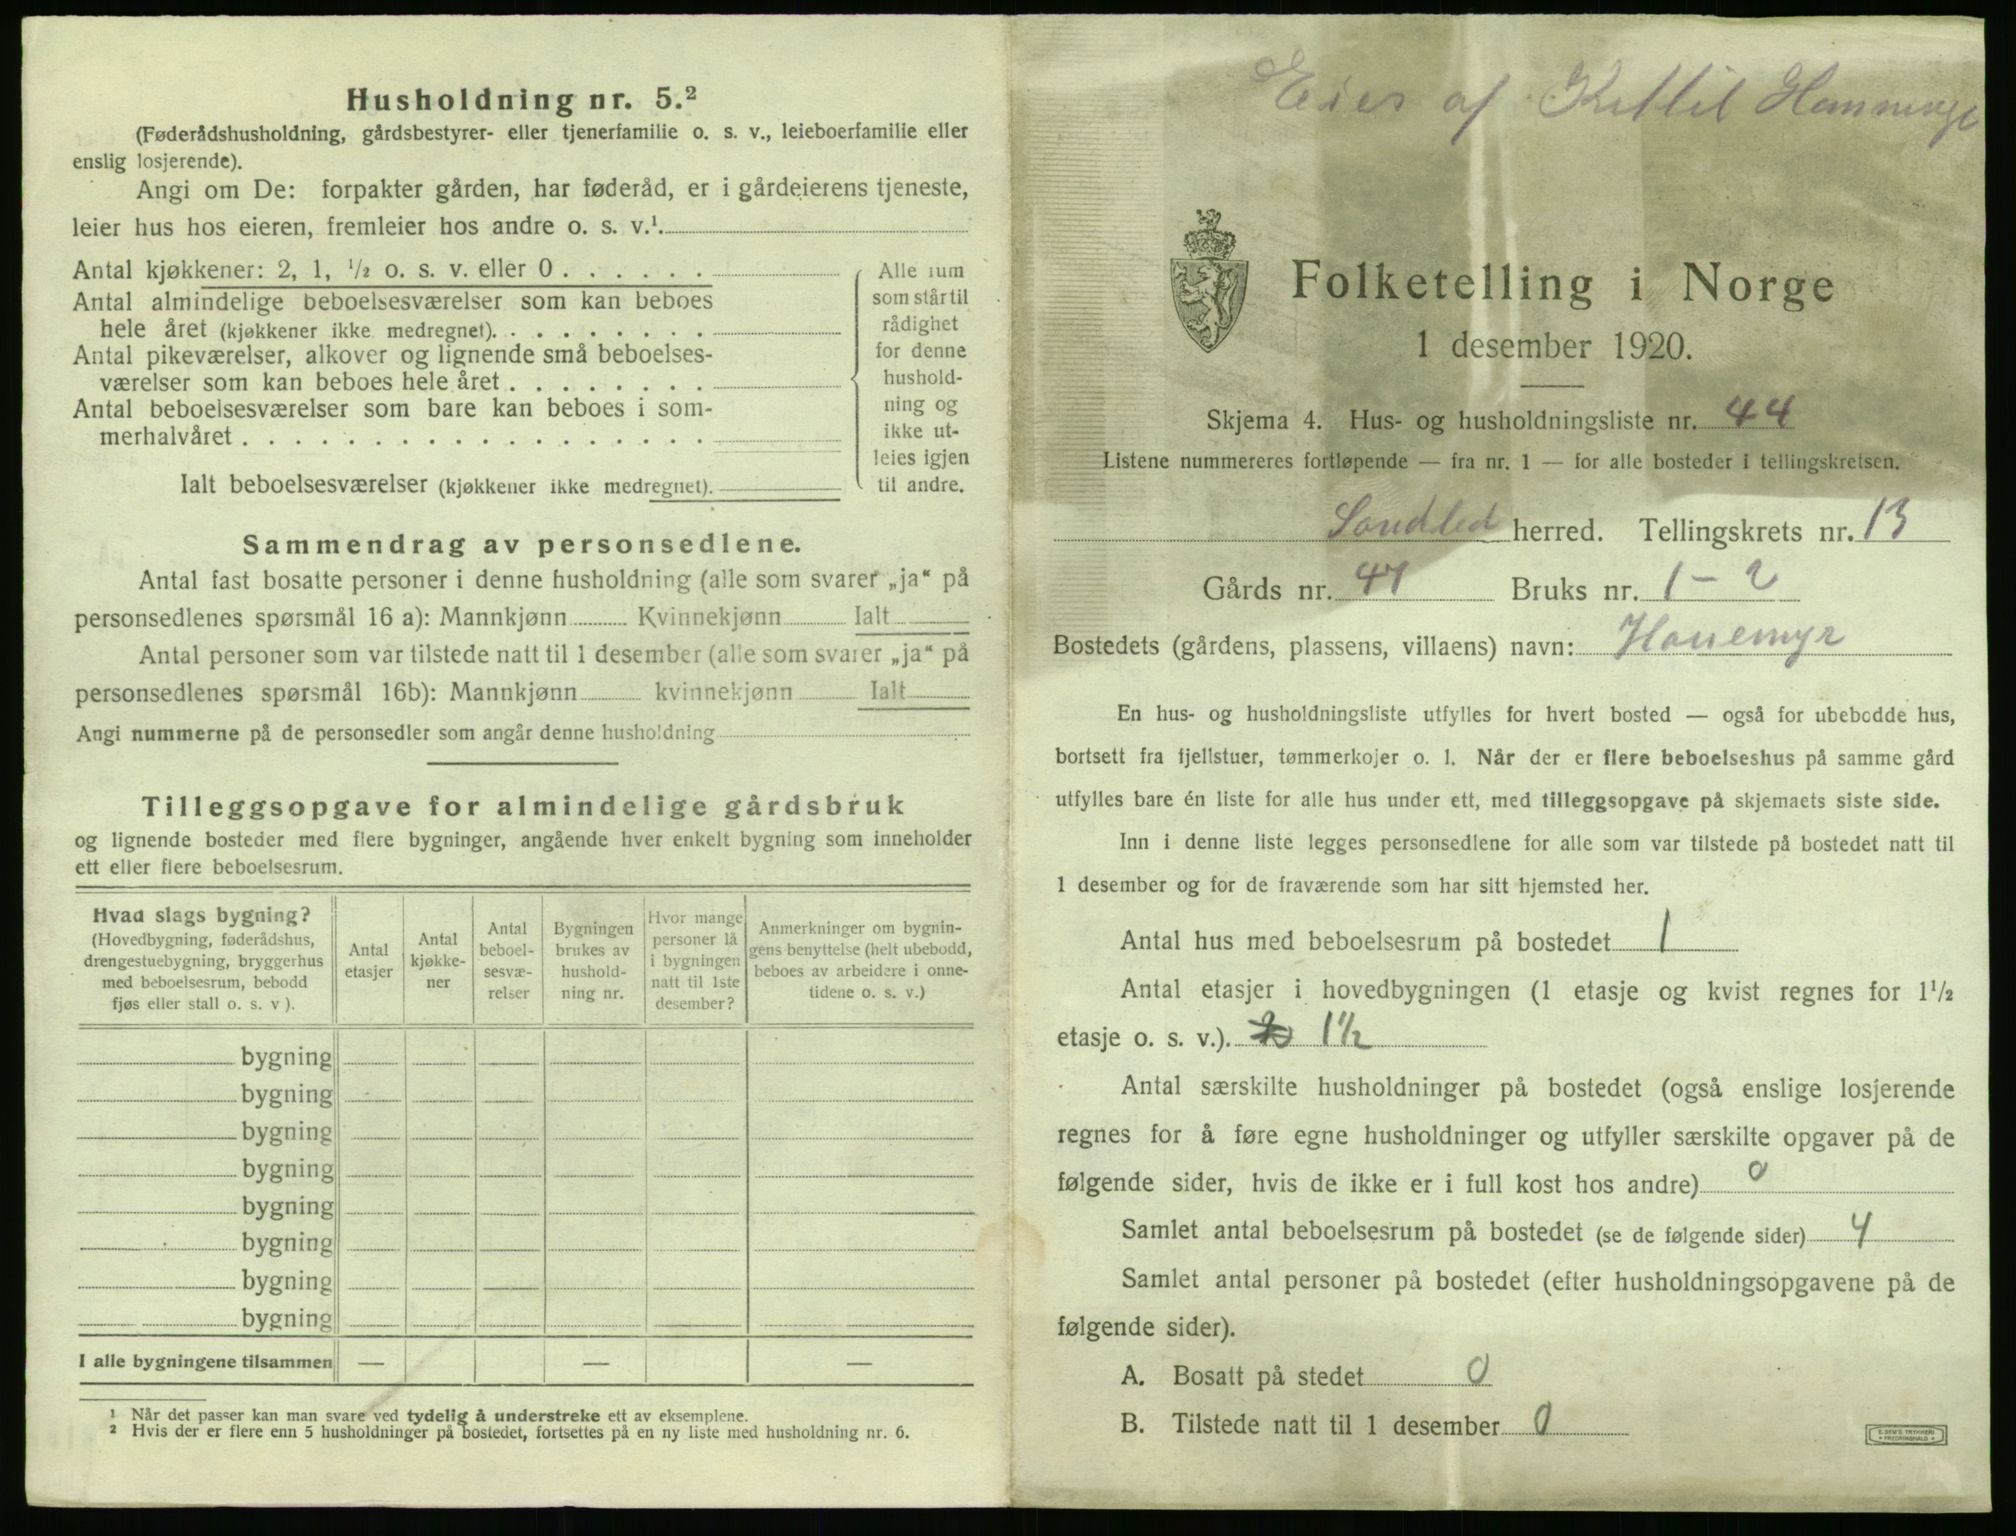 Husholdning nr. 5.²
(Føderådshusholdning, gårdsbestyrer- eller tjenerfamilie o. s. v., leieboerfamilie eller
enslig losjerende).
Angi om De: forpakter gården, har føderåd, er i gårdeierens tjeneste,
leier hus hos eieren, fremleier hos andre o. s. v.¹.
Antal kjøkkener: 2, 1, ½ o. s. v. eller 0 . . . . . .
Antal almindelige beboelsesværelser som kan beboes
hele året (kjøkkener ikke medregnet). . . . . . . . .
Antal pikeværelser, alkover og lignende små beboelses-
værelser som kan beboes hele året . . . . . . . .
Antal beboelsesværelser som bare kan beboes i som-
merhalvåret . . . . . . . . . . . . . . . . . .
Ialt beboelsesværelser (kjøkkener ikke medregnet).
Alle rum
som står til
rådighet
for denne
hushold-
ning og
ikke ut-
leies igjen
til andre.
Sammendrag av personsedlene.
Antal fast bosatte personer i denne husholdning (alle som svarer „ja“ på
personsedlenes spørsmål 16 a): Mannkjønn Kvinnekjønn Ialt
Antal personer som var tilstede natt til 1 desember (alle som svarer „ja“ på
personsedlenes spørsmål 16b): Mannkjønn kvinnekjønn Ialt
Angi nummerne på de personsedler som angår denne husholdning
Tilleggsopgave for almindelige gårdsbruk
og lignende bosteder med flere bygninger, angående hver enkelt bygning som inneholder
ett eller flere beboelsesrum.
Hvad slags bygning?
(Hovedbygning, føderådshus,
drengestuebygning, bryggerhus
med beboelsesrum, bebodd
fjøs eller stall o. s. v ).
Antal
etasjer
Antal
kjøkke-
ner
Antal
beboel-
sesvæ-
relser
Bygningen
brukes av
hushold-
ning nr.
Hvor mange
personer lå
i bygningen
natt til 1ste
desember?
Anmerkninger om bygnin-
gens benyttelse (helt ubebodd,
beboes av arbeidere i onne-
tidene o. s. v.)
bygning
bygning
bygning
bygning
bygning
bygning
bygning
bygning
I alle bygningene tilsammen — — —
¹ Når det passer kan man svare ved tydelig å understreke ett av eksemplene.
² Hvis der er flere enn 5 husholdninger på bostedet, fortsettes på en ny liste med husholdning nr. 6.
Eies af Kittil
Folketelling i Norge
1 desember 1920.
Skjema 4. Hus- og husholdningsliste nr. 44
Listene nummereres fortløpende — fra nr. 1 — for alle bosteder i tellingskretsen.
Søndled herred. Tellingskrets nr. 13
Gårds nr. 47 Bruks nr. 1 - 2
Bostedets (gårdens, plassens, villaens) navn: Hanemyr
En hus- og husholdningsliste utfylles for hvert bosted — også for ubebodde hus,
bortsett fra fjellstuer, tømmerkojer o. l. Når der er flere beboelseshus på samme gård
utfylles bare én liste for alle hus under ett, med tilleggsopgave på skjemaets siste side.
Inn i denne liste legges personsedlene for alle som var tilstede på bostedet natt til
1 desember og for de fraværende som har sitt hjemsted her.
Antal hus med beboelsesrum på bostedet 1
Antal etasjer i hovedbygningen (1 etasje og kvist regnes for 1½
etasje o. s. v.). 1½
Antal særskilte husholdninger på bostedet (også enslige losjerende
regnes for å føre egne husholdninger og utfyller særskilte opgaver på de
følgende sider, hvis de ikke er i full kost hos andre) 0
Samlet antal beboelsesrum på bostedet (se de følgende sider) 4
Samlet antal personer på bostedet (efter husholdningsopgavene på de
følgende sider).
A. Bosatt på stedet 0
B. Tilstede natt til 1 desember 0
E. SEM'S TRYKKERI
• FREDRIKSHALD •